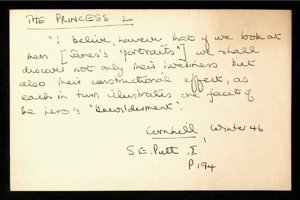 THE PRINCESS 2
"I believe, however, that if we look at
them [James's "portraits"] we shall
discover not only their liveliness but
also their constructional effect, as
each in turn illustrates one facet of
the hero's 'bewilderment'.
Cornhill, Winter 46
S.G. Putt. I
P 194